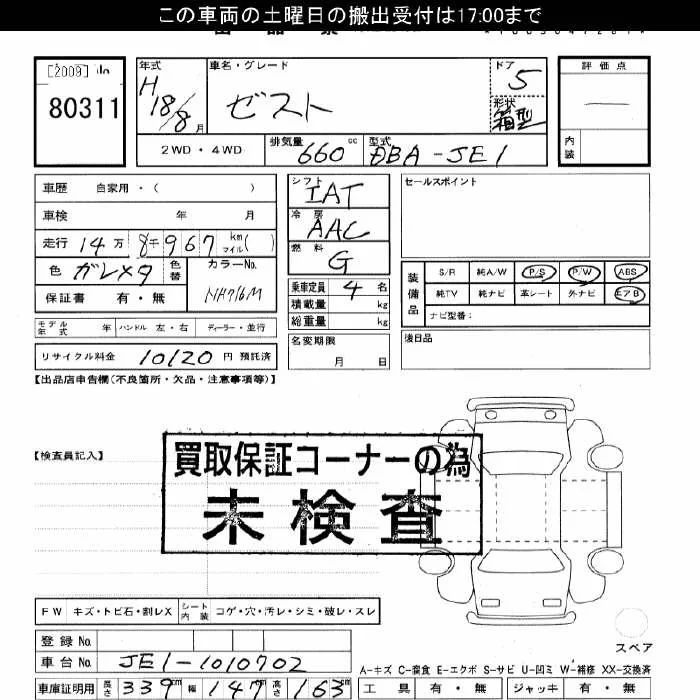 この車両の土曜日の搬出受付は17:00まで
[2009]
80311
年式
H18/8月
車名・グレード
ゼスト
ドア
5
形状
箱型
評価点
内装
2WD・4WD
排気量
660cc
型式
DBA-JE1
車歴 自家用・( )
車検 年 月
走行 14万 8千967 km マイル( )
色 ガンメタ 色替
カラーNo.
NH716M
保証書 有・無
シフト
IAT
冷房
AAC
燃料
G
乗車定員 4名
積載量 kg
総重量 kg
セールスポイント
装備品
S/R 純A/W P/S P/W ABS
純TV 純ナビ 革シート 外ナビ エアB
ナビ型番:
モデル年式 年 ハンドル 左・右 ディーラー・並行
リサイクル料金 10120 円 預託済
名変期限
月 日
後日品
【出品店申告欄(不良箇所・欠品・注意事項等)】
【検査員記入】
買取保証コーナーの為
未検査
FW キズ・トビ石・割レX シート内装 コゲ・穴・汚レ・シミ・破レ・スレ
登録No.
車台No. JE1-1010702
車庫証明用 長さ 339cm 幅 147cm 高さ 163cm
スペア
A-キズ C-腐食 E-エクボ S-サビ U-凹ミ W-補修 XX-交換済
工具 有・無 ジャッキ 有・無